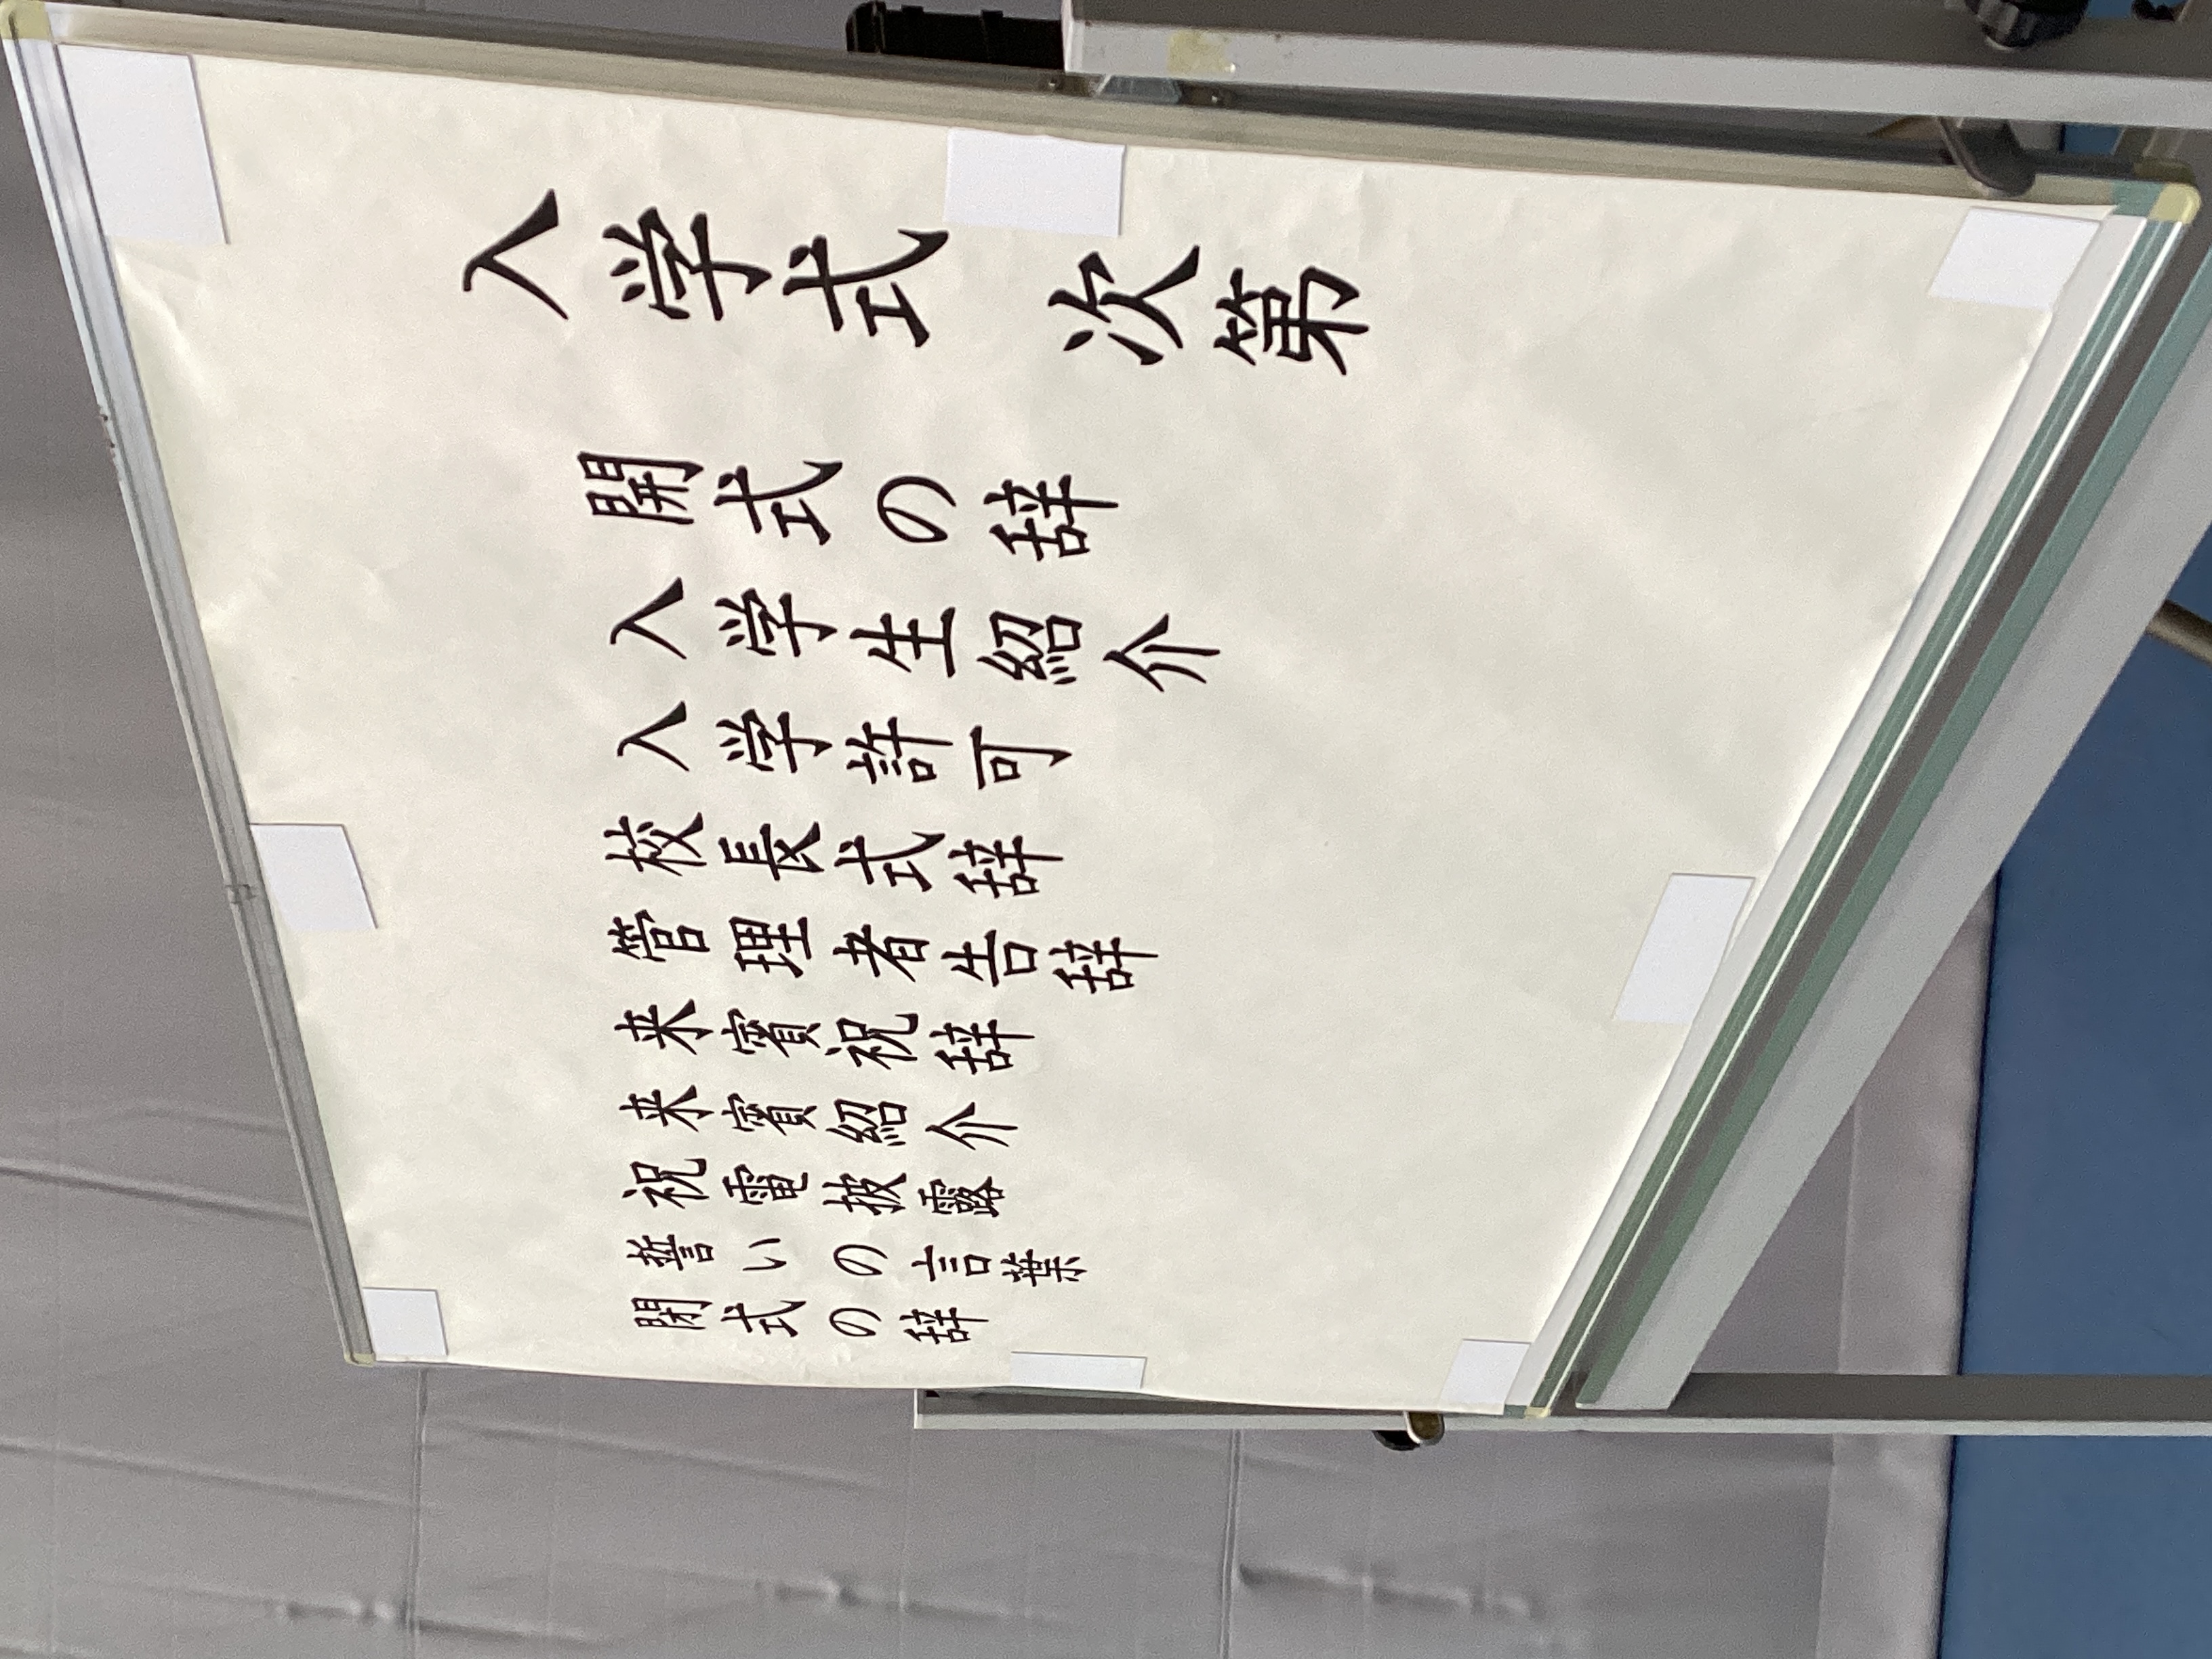 入学式 次第
開式の辞
入学生紹介
入学許可
校長式辞
管理者告辞
来賓祝辞
来賓紹介
祝電披露
誓いの言葉
閉式の辞